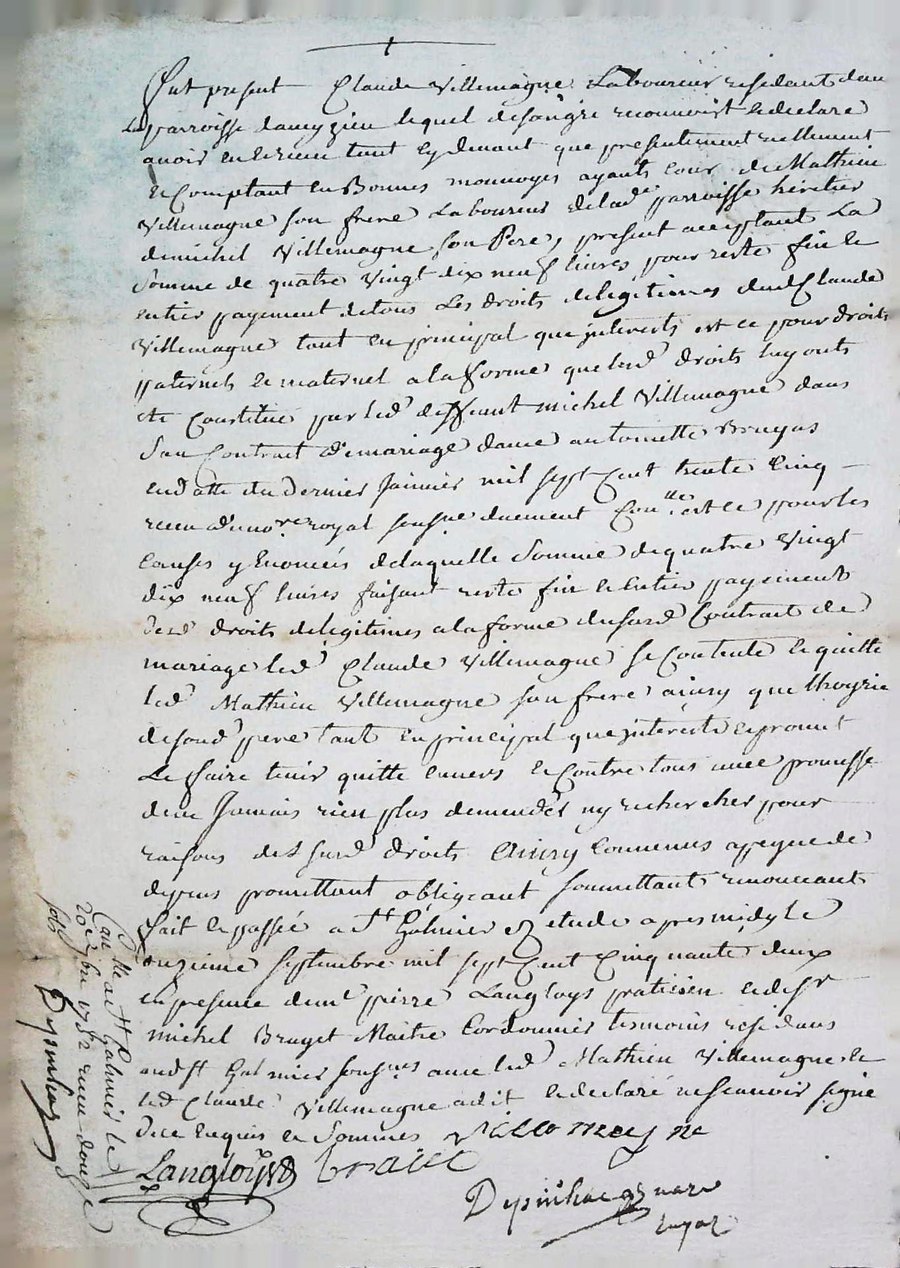 Fut present Claude Villemagne Laboureur residant dans
La parroisse daveyzieu lequel desongre reconnoist et declare
avoir eu et receu tant cydevant que presentement reellement
et Comptant en Bonnes monnoyes ayants cour de Mathieu
Villemagne son frere Laboureur delad.e parroisse heretier
demichel Villemagne son Pere, present acceptant La
Somme de quatre Vingt dix neuf livres pour reste fin et
entier payement detous Les droits delegitimes dud Claude
Villemagne tant en principal que jnterests et ce pour droits
paternels et maternel a la forme que lesd droits luy onts
ete Constitué par led deffunt michel Villemagne dans
Son Contract de mariage davec antoinette Bruyas
endatte du Dernier Janvier mil sept Cent trente Cinq
receu d'un no.re royal sousne duement Con.lle et ce pour les
Causes y Enoncées delaquelle Somme de quatre Vingt
dix neuf livres faisant reste fin et Entier payement
desd droits delegitimes a la forme dususd Contrait de
mariage led Claude Villemagne se Contente et quitte
led Mathieu Villemagne son frere ainsy que l'hoyrie
desond pere tant en principal que jnterests et promet
Le faire tenir quitte envers et Contre tous avec promesse
den Jamais rien plus demender ny rechercher pour
raisons des susd droits Ainsy Convenus a peyne de
depens promettant obligeant soumettant renonceant
fait et passé a St Galmier ez etude apres midy le
onzieme septembre mil sept Cent Cinquante deux
en presence de m.e pierre Langloys praticien et de sr
michel Brayet Maitre Cordonnier temoins residans
aud St Galmier sousnes avec led Mathieu Villemagne et
led Claude Villemagne a dit et declaré ne scauoir signe
de ce Enquis et Sommes Villemagne
Langloys Braiet
Depinhac nore
royal
Con.llé a St Galmier le
20 7bre 1752 receu douze
sols Depinhac